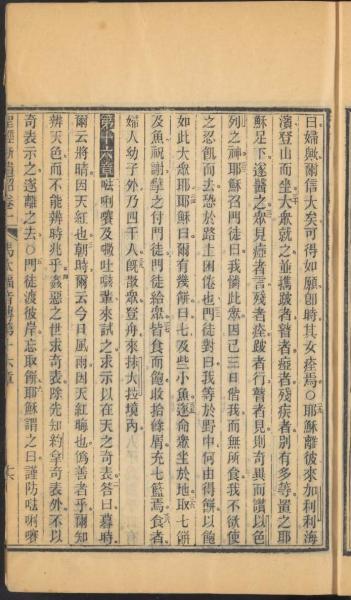 曰婦歟爾信大矣可得如願卽時其女痊焉○耶穌離彼來加利利海
濱登山而坐大衆就之並攜跛者瞽者瘂者殘疾者別有多等置之耶
穌足下遂醫之衆見瘂者言殘者痊跛者行瞽者見則奇異而讚以色
列之神耶穌召門徒曰我憐此衆因己三日偕我而無所食我不欲使
之忍飢而去恐於路上困倦也門徒對曰我等於野中何由得餅以飽
如此大衆耶耶穌曰爾有幾餅曰七及些小魚遂命衆坐於地取七餅
及魚祝謝擘之付門徒門徒給衆皆食而飽收拾餘屑充七籃焉食者
婦人幼子外乃四千人旣散衆登舟來抹大拉境內
第十六章 㕸唎㘔及㘔吐㘔輩來試之求示以在天之奇表答曰暮時
爾云將晴因天紅也朝時爾云今日風雨因天紅曀也僞善者乎爾知
辨天色而不能辨時兆乎姦惡之世求奇表除先知約拿奇表外不以
奇表示之遂離之去○門徒渡彼岸忘取餅耶穌謂之曰謹防㕸唎㘔
聖經 卷一 馬太福音傳第十六章